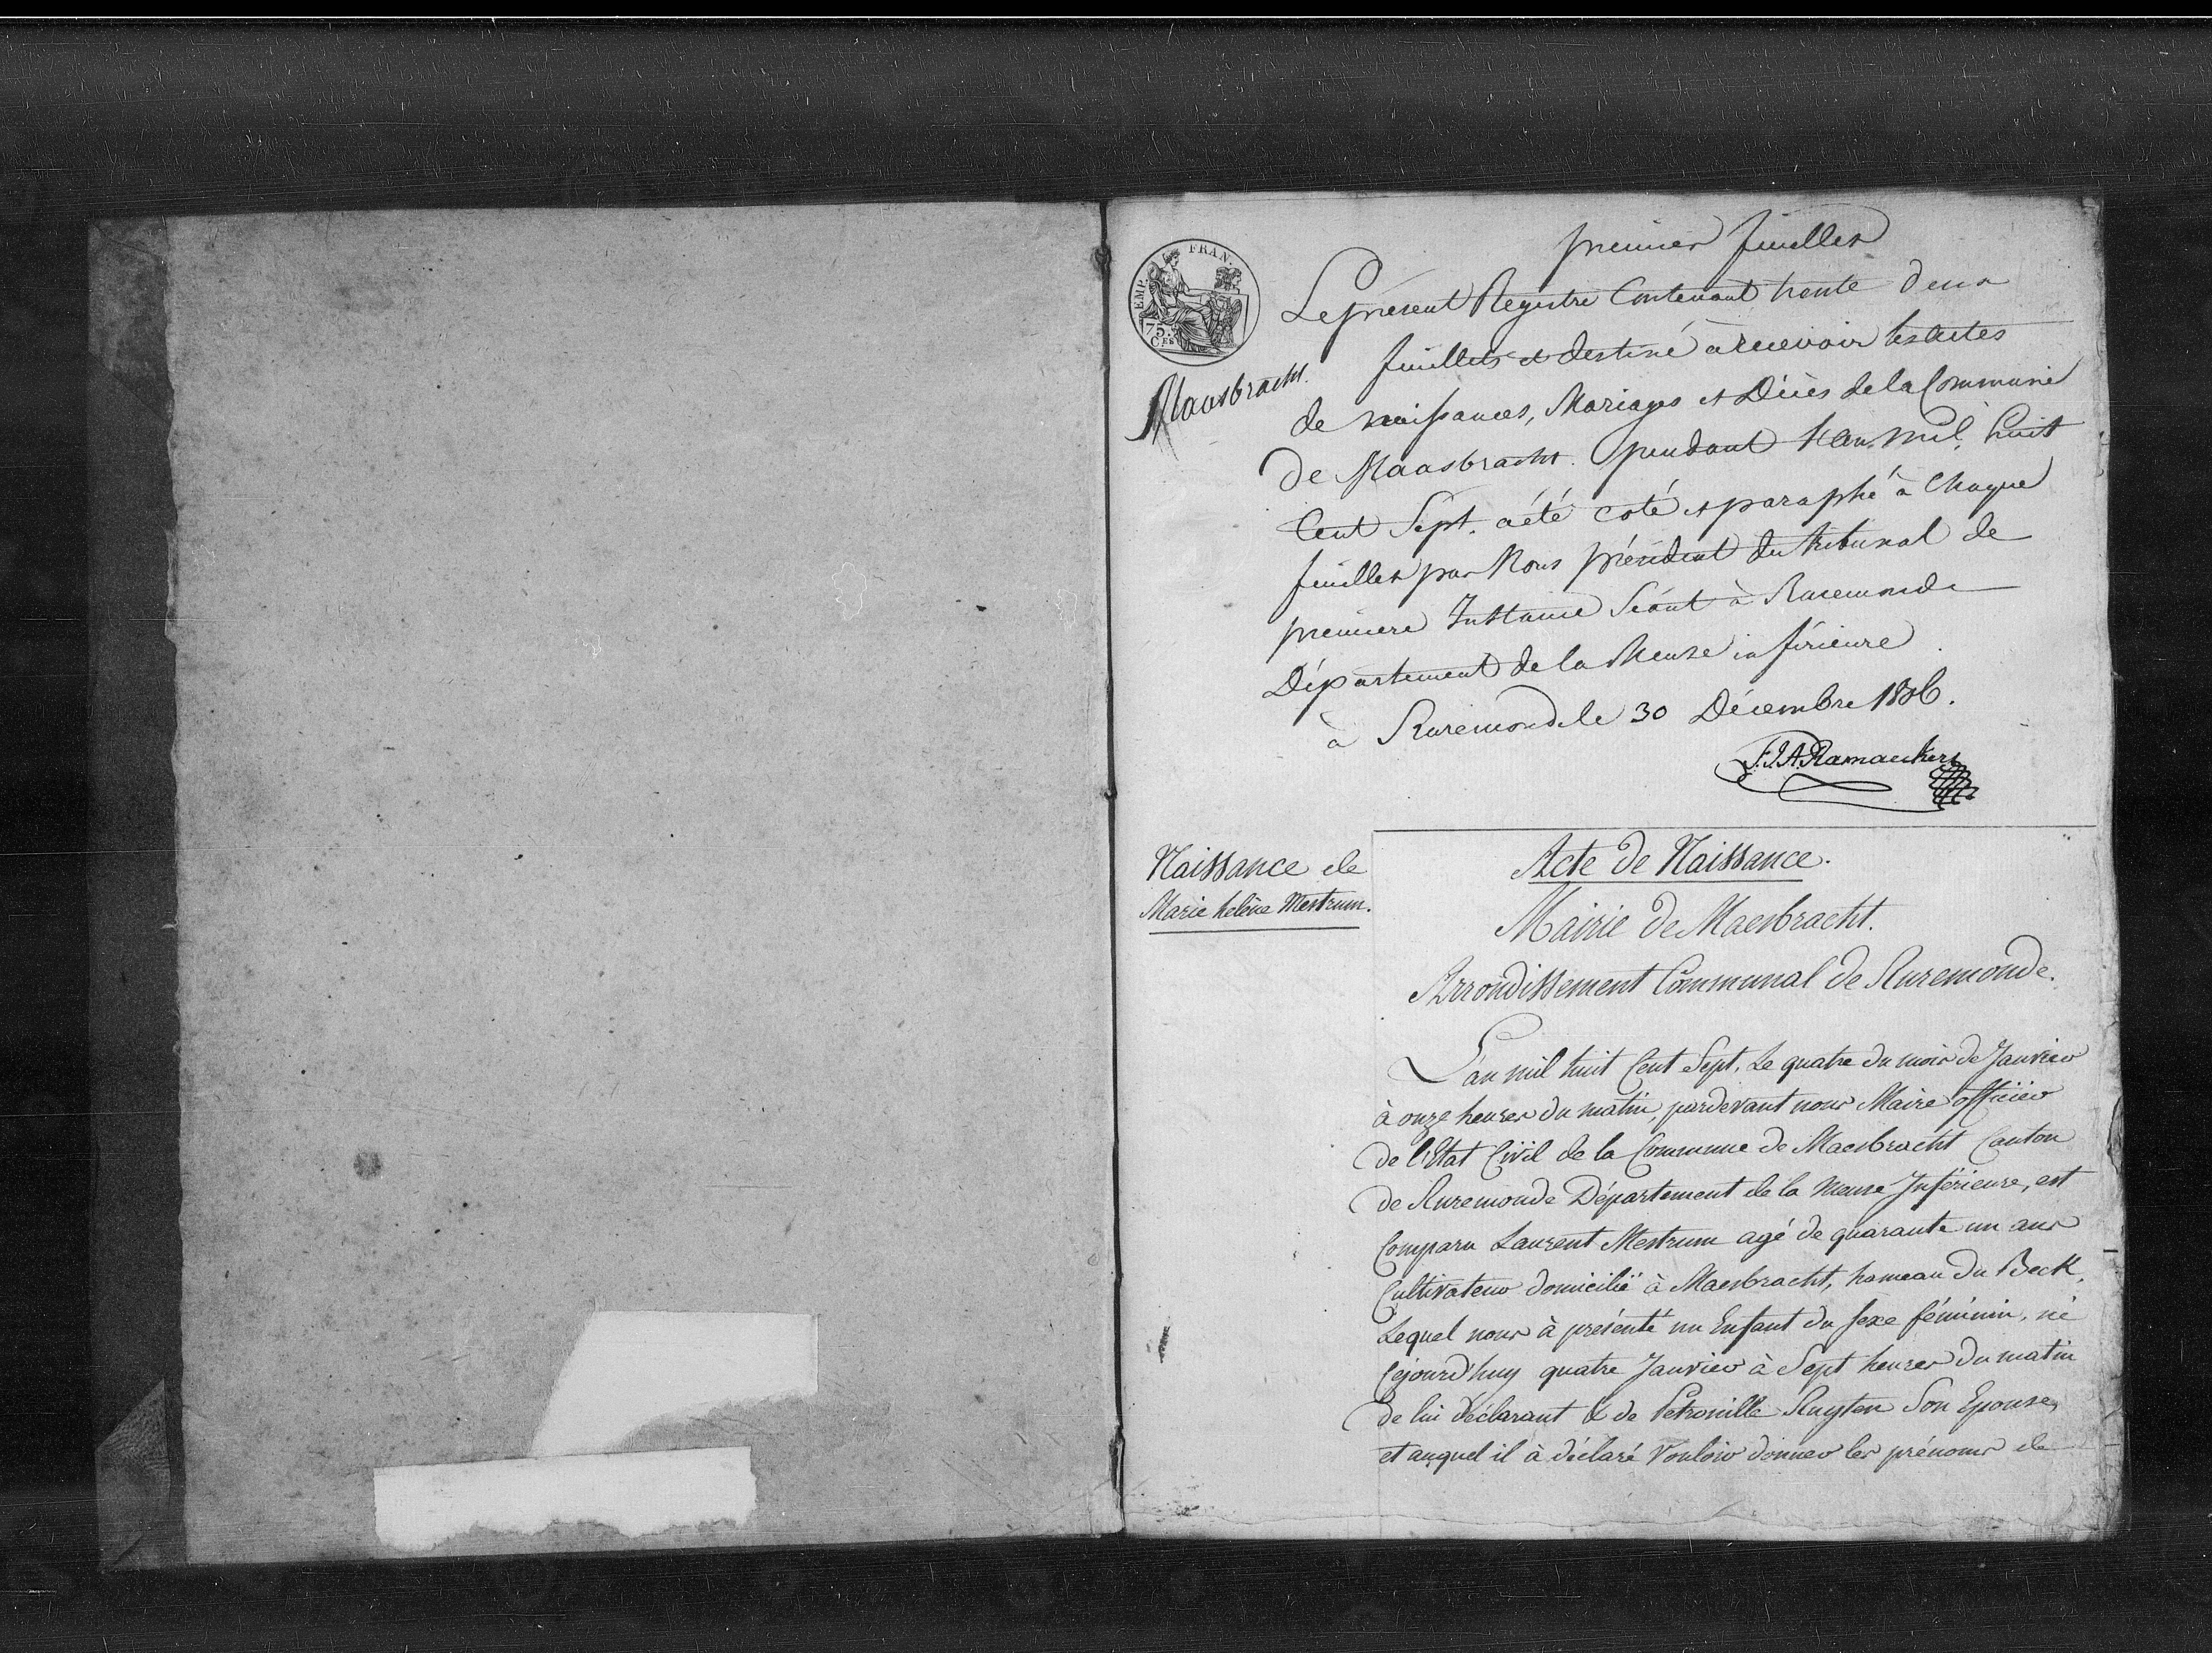 premier feuillet
EMP. FRAN.
75.
C.ES
Maasbracht.
Le present Registre Contenant trente deux
feuillets et destiné a recevoir les Actes
de naissances, Mariages et Décès de la Commune
de Maasbracht. pendant l'an mil huit
Cent Sept. a été coté et paraphé à Chaque
feuillet par Nous président du tribunal de
premiere Instance Séant à Ruremonde
Département de la Meuse inférieure
à Ruremonde le 30 Décembre 1806.
F.J.A. Ramaeckers
Naissance de
Marie heléne Mestrum.
Acte de Naissance.
Mairie de Maesbracht.
Arrondissement Communal de Ruremonde.
L'an mil huit Cent Sept, Le quatre du mois de Janvier
à onze heures du matin, pardevant nous Maire officier
de l'Etat Civil de la Commune de Maesbracht Canton
de Ruremonde Département de la Meuse Inférieure, est
Comparu Laurent Mestrum agé de quarante un ans
Cultivateur domicilié à Maesbracht, hameau du Beck,
Lequel nous à présenté un Enfant du sexe féminin, né
Cejourd'huy quatre Janvier à Sept heures du matin
de lui déclarant & de Petronille Ruyten Son Epouse,
et auquel il à déclaré Vouloir donner les prénoms de